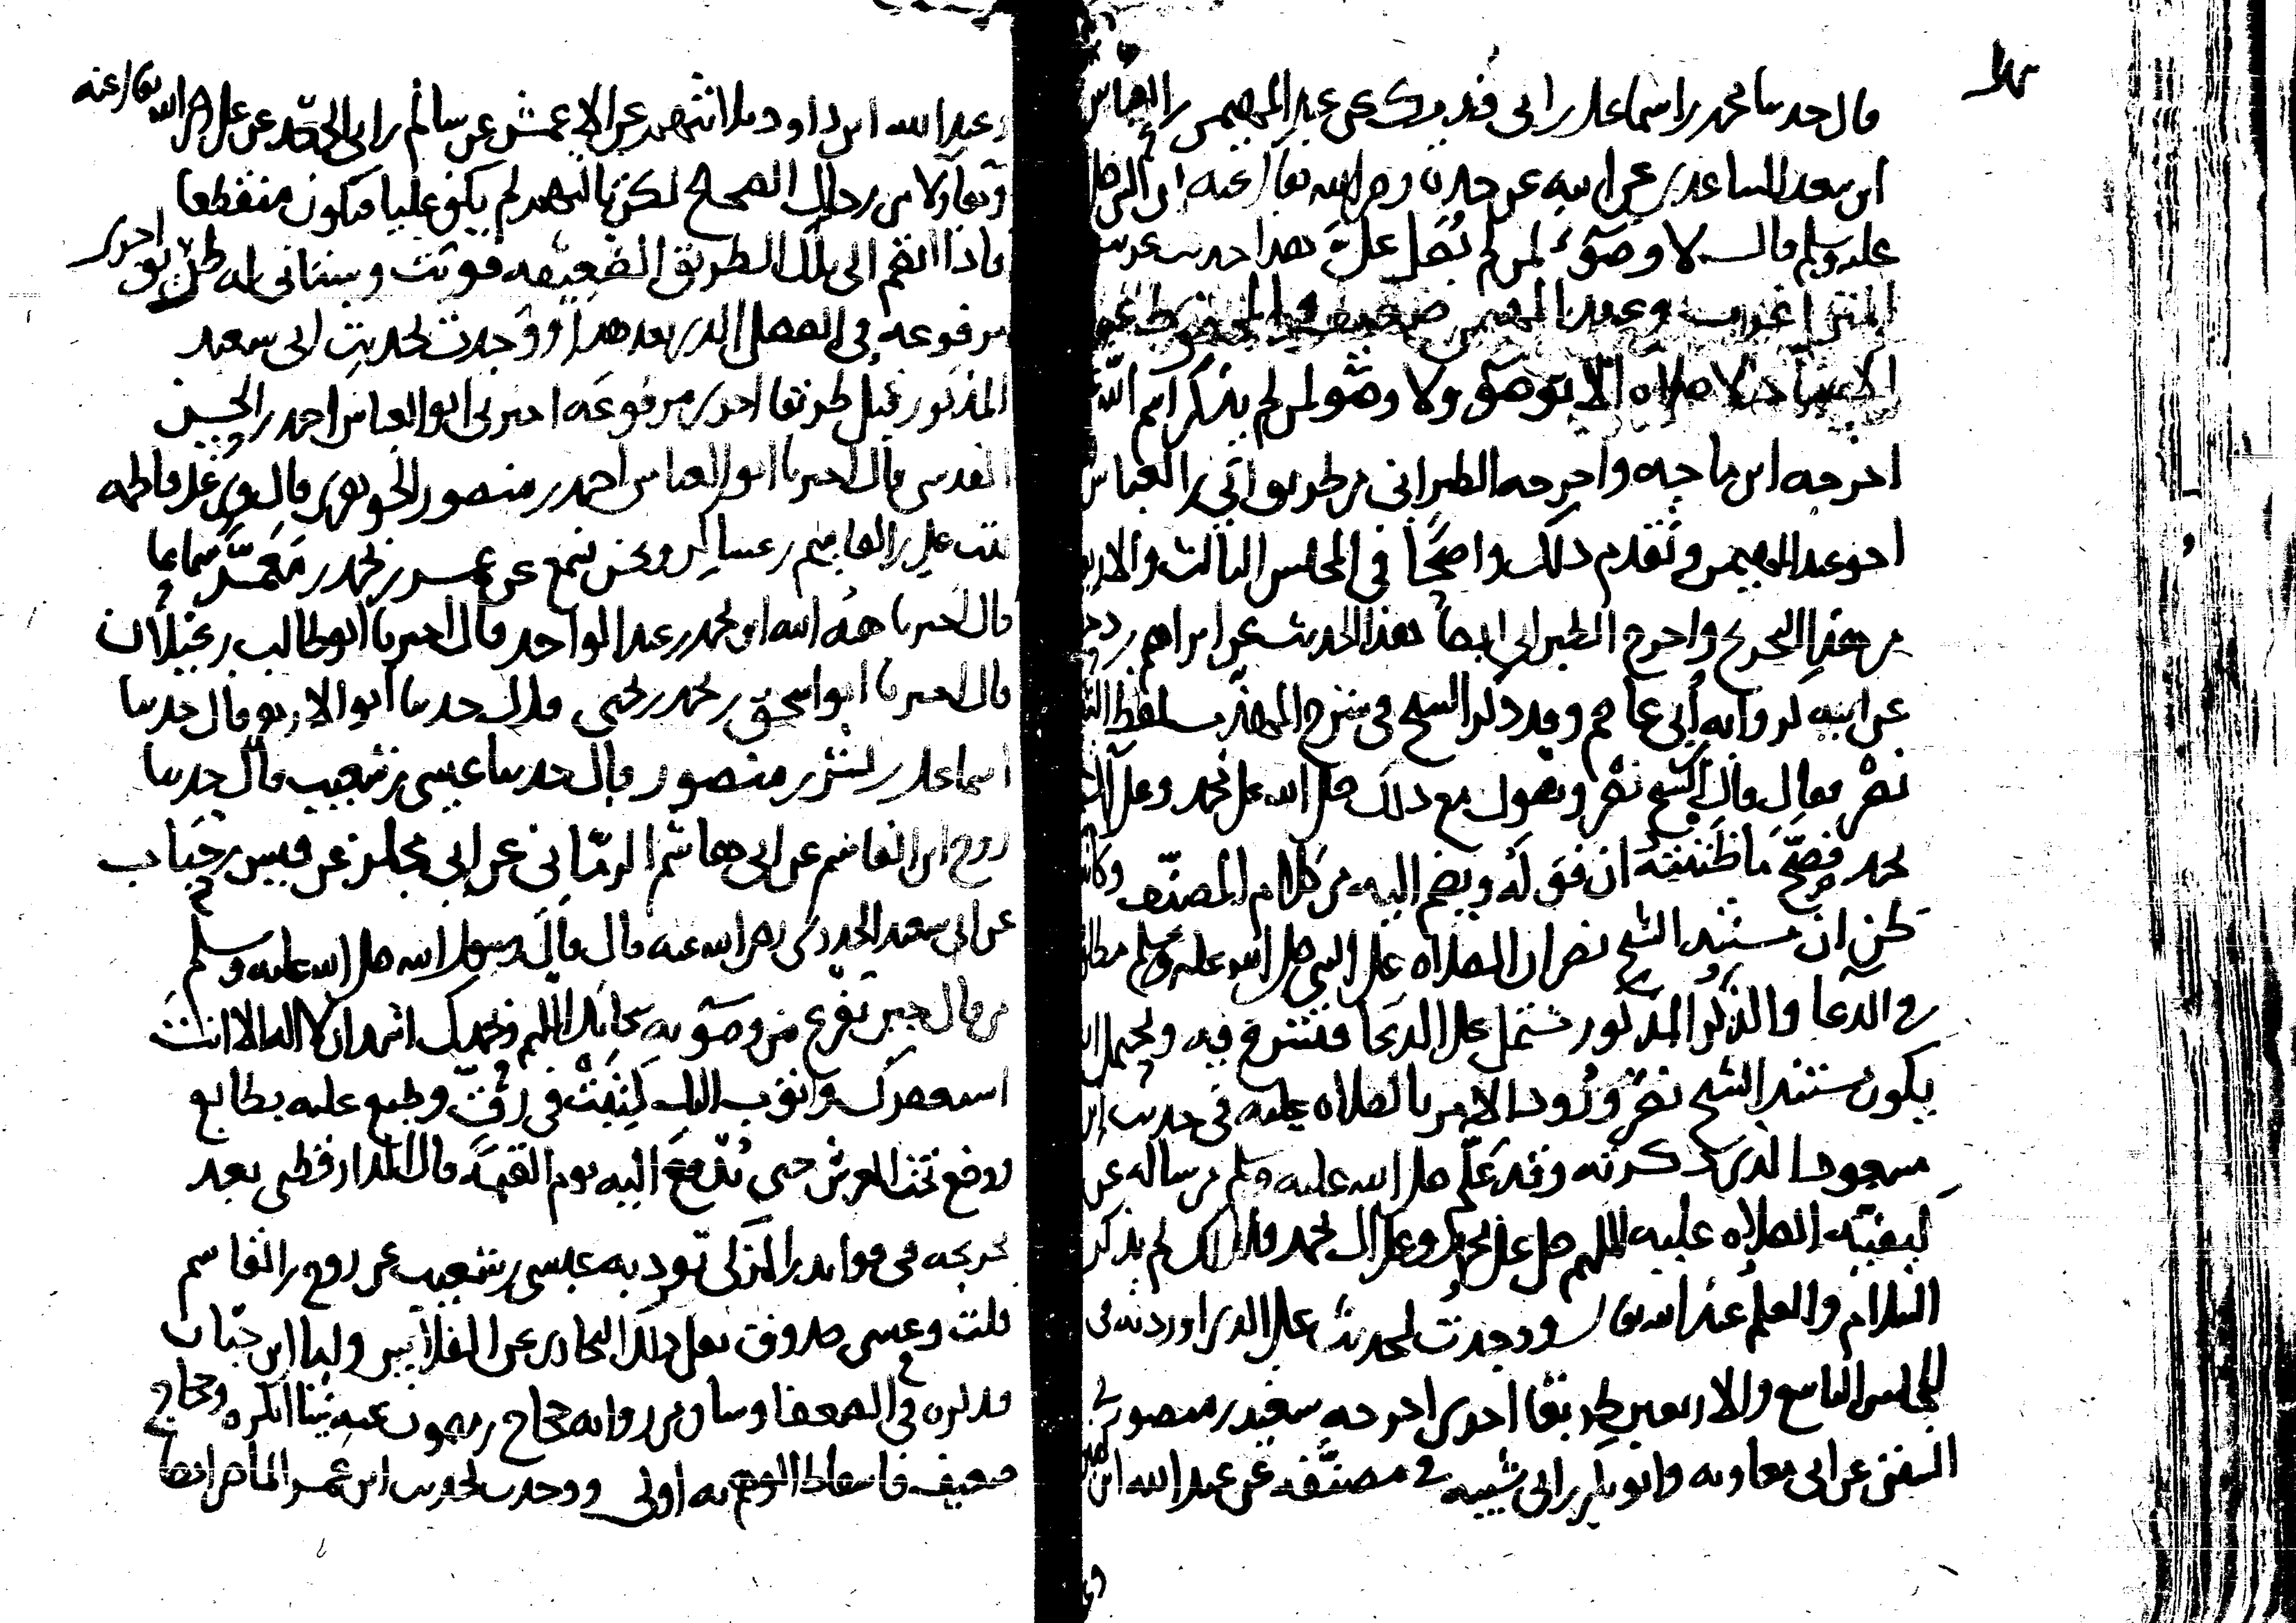 قال حدثنا محمد بن اسماعيل بن ابي فديك عن عبد المهيمن بن العباس
ابن سعد الساعدي عن ابيه عن جده رضي الله تعالى عنه ان النبي صلى
عليه وسلم قال لا وضوء لمن لم يصل عليّ هذا حديث غريب
المتن اغرب وعبد المهيمن ضعيف والمحفوظ بهذا
الاسناد لا صلاة الا بوضوء ولا وضوء لمن لم يذكر اسم الله
اخرجه ابن ماجه واخرجه الطبراني من طريق ابي بن العباس
اخو عبد المهيمن وتقدم ذلك واضحا في المجلس الثالث والاربعين
من هذا التخريج واخرج الطبراني ايضا هذا الحديث عن ابراهيم بن دحيم
عن ابيه كرواية ابي عاصم وقد ذكر الشيخ في شرح المهذب لفظ الشيخ
نصر فقال قال الشيخ نصر ويقول مع ذلك صلى الله على محمد وعلى آل
محمد فصح ما ظننته ان فوق له ويضم اليه من كلام المصنف وكأنه
لكن ان مستند الشيخ نصر ان الصلاة على النبي صلى الله عليه وسلم مطلوبة
في الدعا والذكر المذكور مشتمل على الدعا فتشرع فيه ويحتمل ان
يكون مستند الشيخ نصر ورود الامر بالصلاة عليه في حديث ابن
مسعود الذي ذكرته وقد علّم صلى الله عليه وسلم من ساله عن
كيفية الصلاة عليه اللهم صل على محمد وعلى آل محمد فلذلك لم يذكر
السلام والعلم عند الله تعالى ووجدت لحديث علي الذي اوردته في
المجلس التاسع والاربعين طريقا اخرى اخرجه سعيد بن منصور في
السنن عن ابي معاوية وابو بكر بن ابي شيبة في مصنفه عن عبد الله ابن نمير
وعبد الله ابن داود ثلاثتهم عن الاعمش عن سالم بن ابي الجعد عن علي رضي الله تعالى عنه
وهؤلاء من رجال الصحيح لكن سالم لم يلق عليا فيكون منقطعا
فاذا انضم الى تلك الطريق الضعيفه قويت وسياتي له طريق اخرى
مرفوعه في الفصل الذي بعد هذا ووجدت لحديث ابي سعيد
المذكور قبل طريقا اخرى مرفوعه اخبرني ابو العباس احمد بن الحسن
القدسي قال اخبرنا ابو العباس احمد بن منصور الجوهري قال قرئ على فاطمه
بنت علي بن القاسم بن عساكر ونحن نسمع عن عمر بن محمد بن معمر سماعا
قال اخبرنا هبة الله ابن محمد بن عبد الواحد قال اخبرنا ابو طالب بن غيلان
قال اخبرنا ابو اسحق بن محمد بن يحيى قال حدثنا ابو الازهر قال حدثنا
اسماعيل بن بشر بن منصور قال حدثنا عيسى بن شعيب قال حدثنا
روح ابن القاسم عن ابي هاشم الرماني عن ابي مجلز عن قيس بن عباد
عن ابي سعيد الخدري رضي الله عنه قال قال رسول الله صلى الله عليه وسلم
من قال حين يفرغ من وضوءه سبحانك اللهم وبحمدك اشهد ان لا اله الا انت
استغفرك واتوب اليك كتبت في رق وطبع عليه بطابع
ووضع تحت العرش حتى تدفع اليه يوم القيمة قال الدارقطني بعد
تخريجه في فوائد المزكي تفرد به عيسى بن شعيب عن روح بن القاسم
قلت وعيسى صدوق نقل ذلك البخاري عن الفلاس واما ابن حبان
فذكره في الضعفا وساق من رواية حجاج بن ميمون عنه شيئا انكره وحجاج
ضعيف فالصاق الوهم به اولى ووجدت لحديث ابن عمر الماضي ايضا